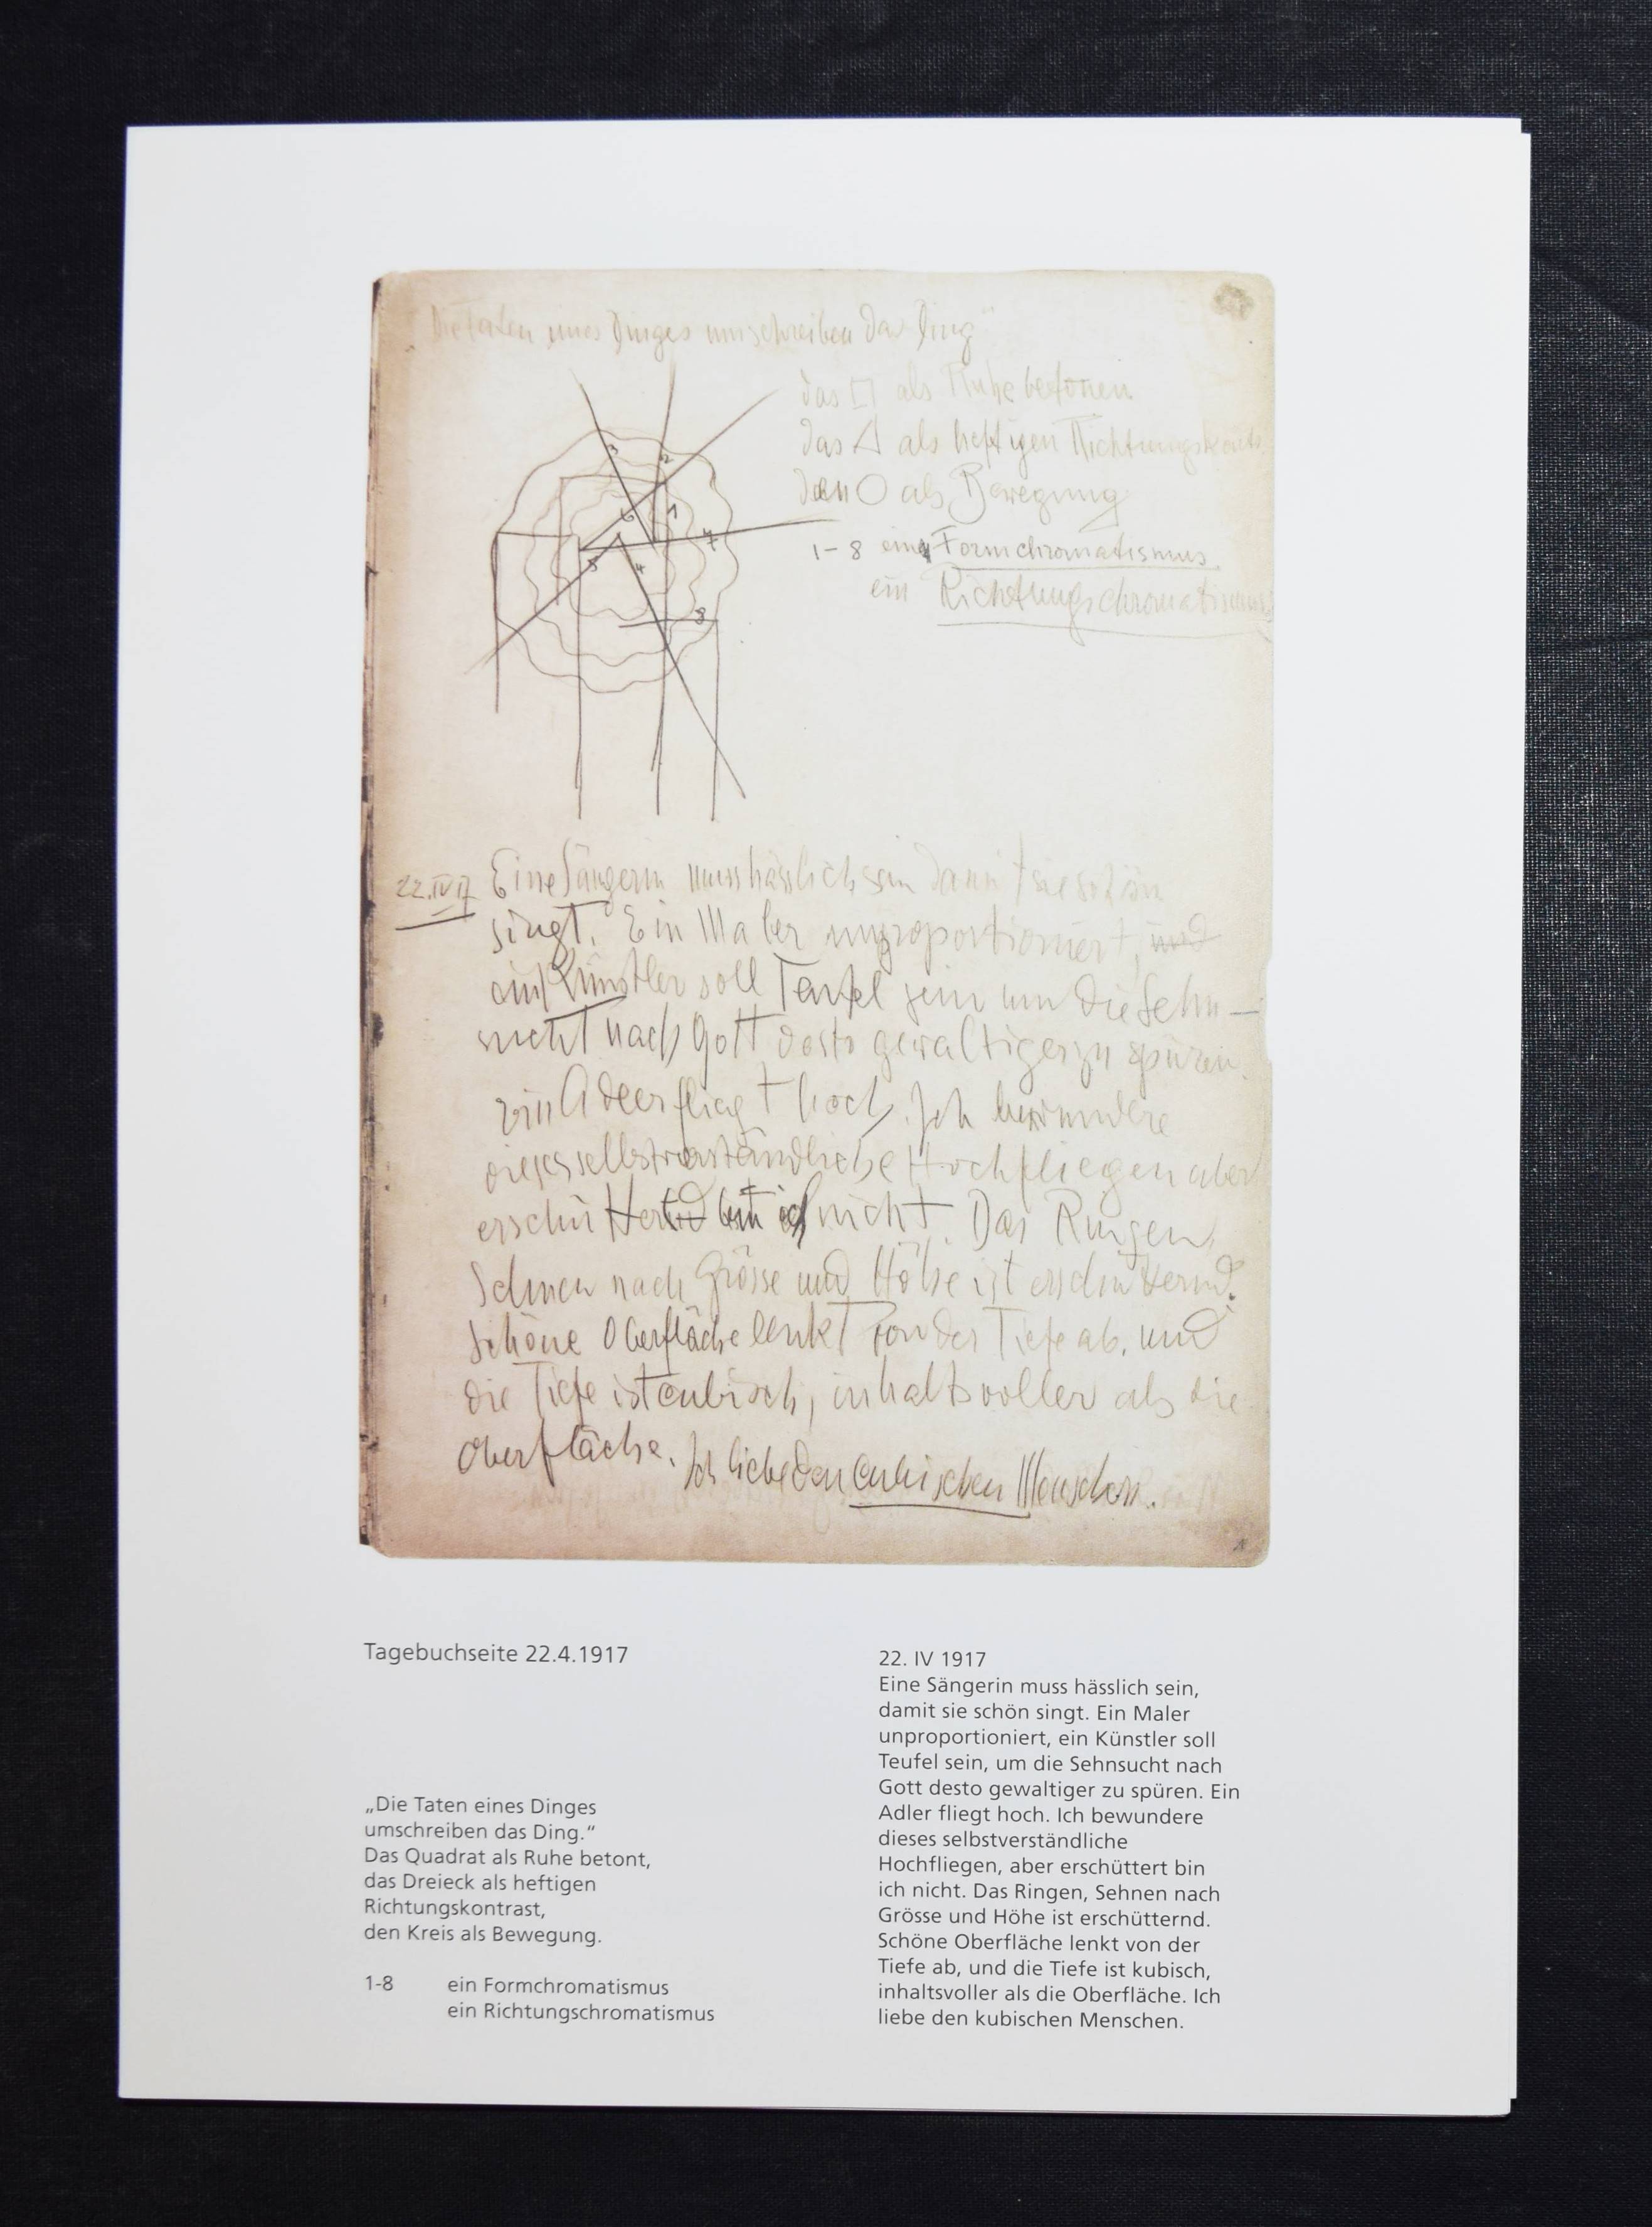 Die Taten eines Dinges umschreiben das Ding"
das □ als Ruhe betonen
das △ als heftigen Richtungskontr.
den ○ als Bewegung
1-8 ein Formchromatismus
ein Richtungschromatismus
3
2
6
1
7
5
4
8
22.IV 17
Eine Sängerin muss hässlich sein damit sie schön
singt. Ein Maler unproportioniert, und
ein Künstler soll Teufel sein um die Sehn-
sucht nach Gott desto gewaltiger zu spüren.
ein Adler fliegt hoch. Ich bewundere
dieses selbstverständliche Hochfliegen aber
erschüttert bin ich nicht. Das Ringen,
Sehnen nach Grösse und Höhe ist erschütternd.
Schöne Oberfläche lenkt von der Tiefe ab, und
die Tiefe ist cubisch, inhaltsvoller als die
Oberfläche. Ich liebe den cubischen Menschen.
Tagebuchseite 22.4.1917
„Die Taten eines Dinges
umschreiben das Ding.“
Das Quadrat als Ruhe betont,
das Dreieck als heftigen
Richtungskontrast,
den Kreis als Bewegung.
1-8 ein Formchromatismus
ein Richtungschromatismus
22. IV 1917
Eine Sängerin muss hässlich sein,
damit sie schön singt. Ein Maler
unproportioniert, ein Künstler soll
Teufel sein, um die Sehnsucht nach
Gott desto gewaltiger zu spüren. Ein
Adler fliegt hoch. Ich bewundere
dieses selbstverständliche
Hochfliegen, aber erschüttert bin
ich nicht. Das Ringen, Sehnen nach
Grösse und Höhe ist erschütternd.
Schöne Oberfläche lenkt von der
Tiefe ab, und die Tiefe ist kubisch,
inhaltsvoller als die Oberfläche. Ich
liebe den kubischen Menschen.